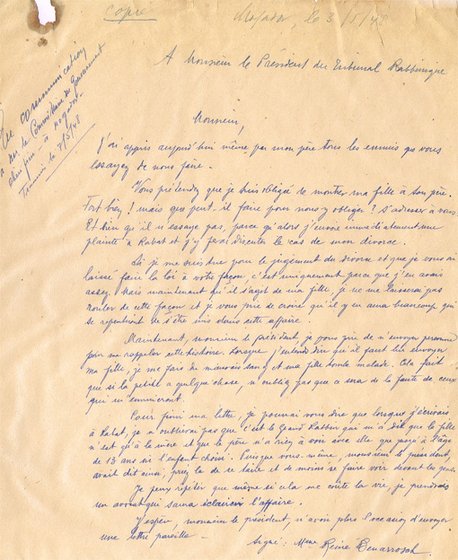 copie
Mogador, le 3/5/48
A Monsieur le Président du Tribunal Rabbinique
Vu
à Mr le Commissaire du Gouvernement
Monsieur,
J'ai appris aujourd'hui même par mon père tous les ennuis que vous
essayez de nous faire.
Vous prétendez que je suis obligée de montrer ma fille à son père.
Fort bien ! mais que peut-il faire pour nous y obliger ? S'adresser à vous.
Et bien qu'il n'essaye pas, parce qu'alors j'envoie immédiatement une
plainte à Rabat et j'y ferai discuter le cas de mon divorce.
Si je me suis tue pour le jugement du divorce et que je vous ai
laissé faire la loi à votre façon, c'est uniquement parce que j'en avais
assez, mais maintenant qu'il s'agit de ma fille, je ne me laisserai pas
rouler de cette façon et je vous prie de croire qu'il y en aura beaucoup qui
se repentiront de s'être mis dans cette affaire.
Maintenant, monsieur le président, je vous prie de n'envoyer personne
pour me rappeler cette histoire. Lorsque j'entends dire qu'il faut envoyer
ma fille, je me fais du mauvais sang et ma fille tombe malade. Cela fait
que si la petite a quelque chose, n'oubliez pas que ce sera de la faute de ceux
qui m'ennuieront.
Pour finir ma lettre, je pourrai vous dire que lorsque j'écrirais
à Rabat, je n'oublierai pas que c'est le Grand Rabbin qui m'a dit que la fille
n'est qu'à la mère et que le père n'a rien à voir avec elle que jusqu'à l'âge
de 13 ans où l'enfant choisi. Puisque vous-même, monsieur le président,
avait dit ainsi, priez-le de se taire et de moins se faire voir devant les gens.
Je peux répéter que même si cela me coûte la vie, je prendrai
un avocat qui saura éclaircir l'affaire.
J'espère, monsieur le président, n'avoir plus l'occasion d'envoyer
une lettre pareille -
Signé : Mme Reine Benarrosch